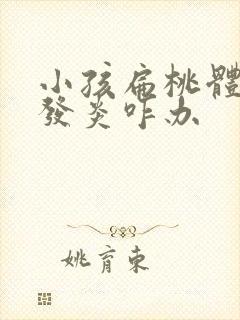 小孩扁桃體
發炎咋办
姚育東